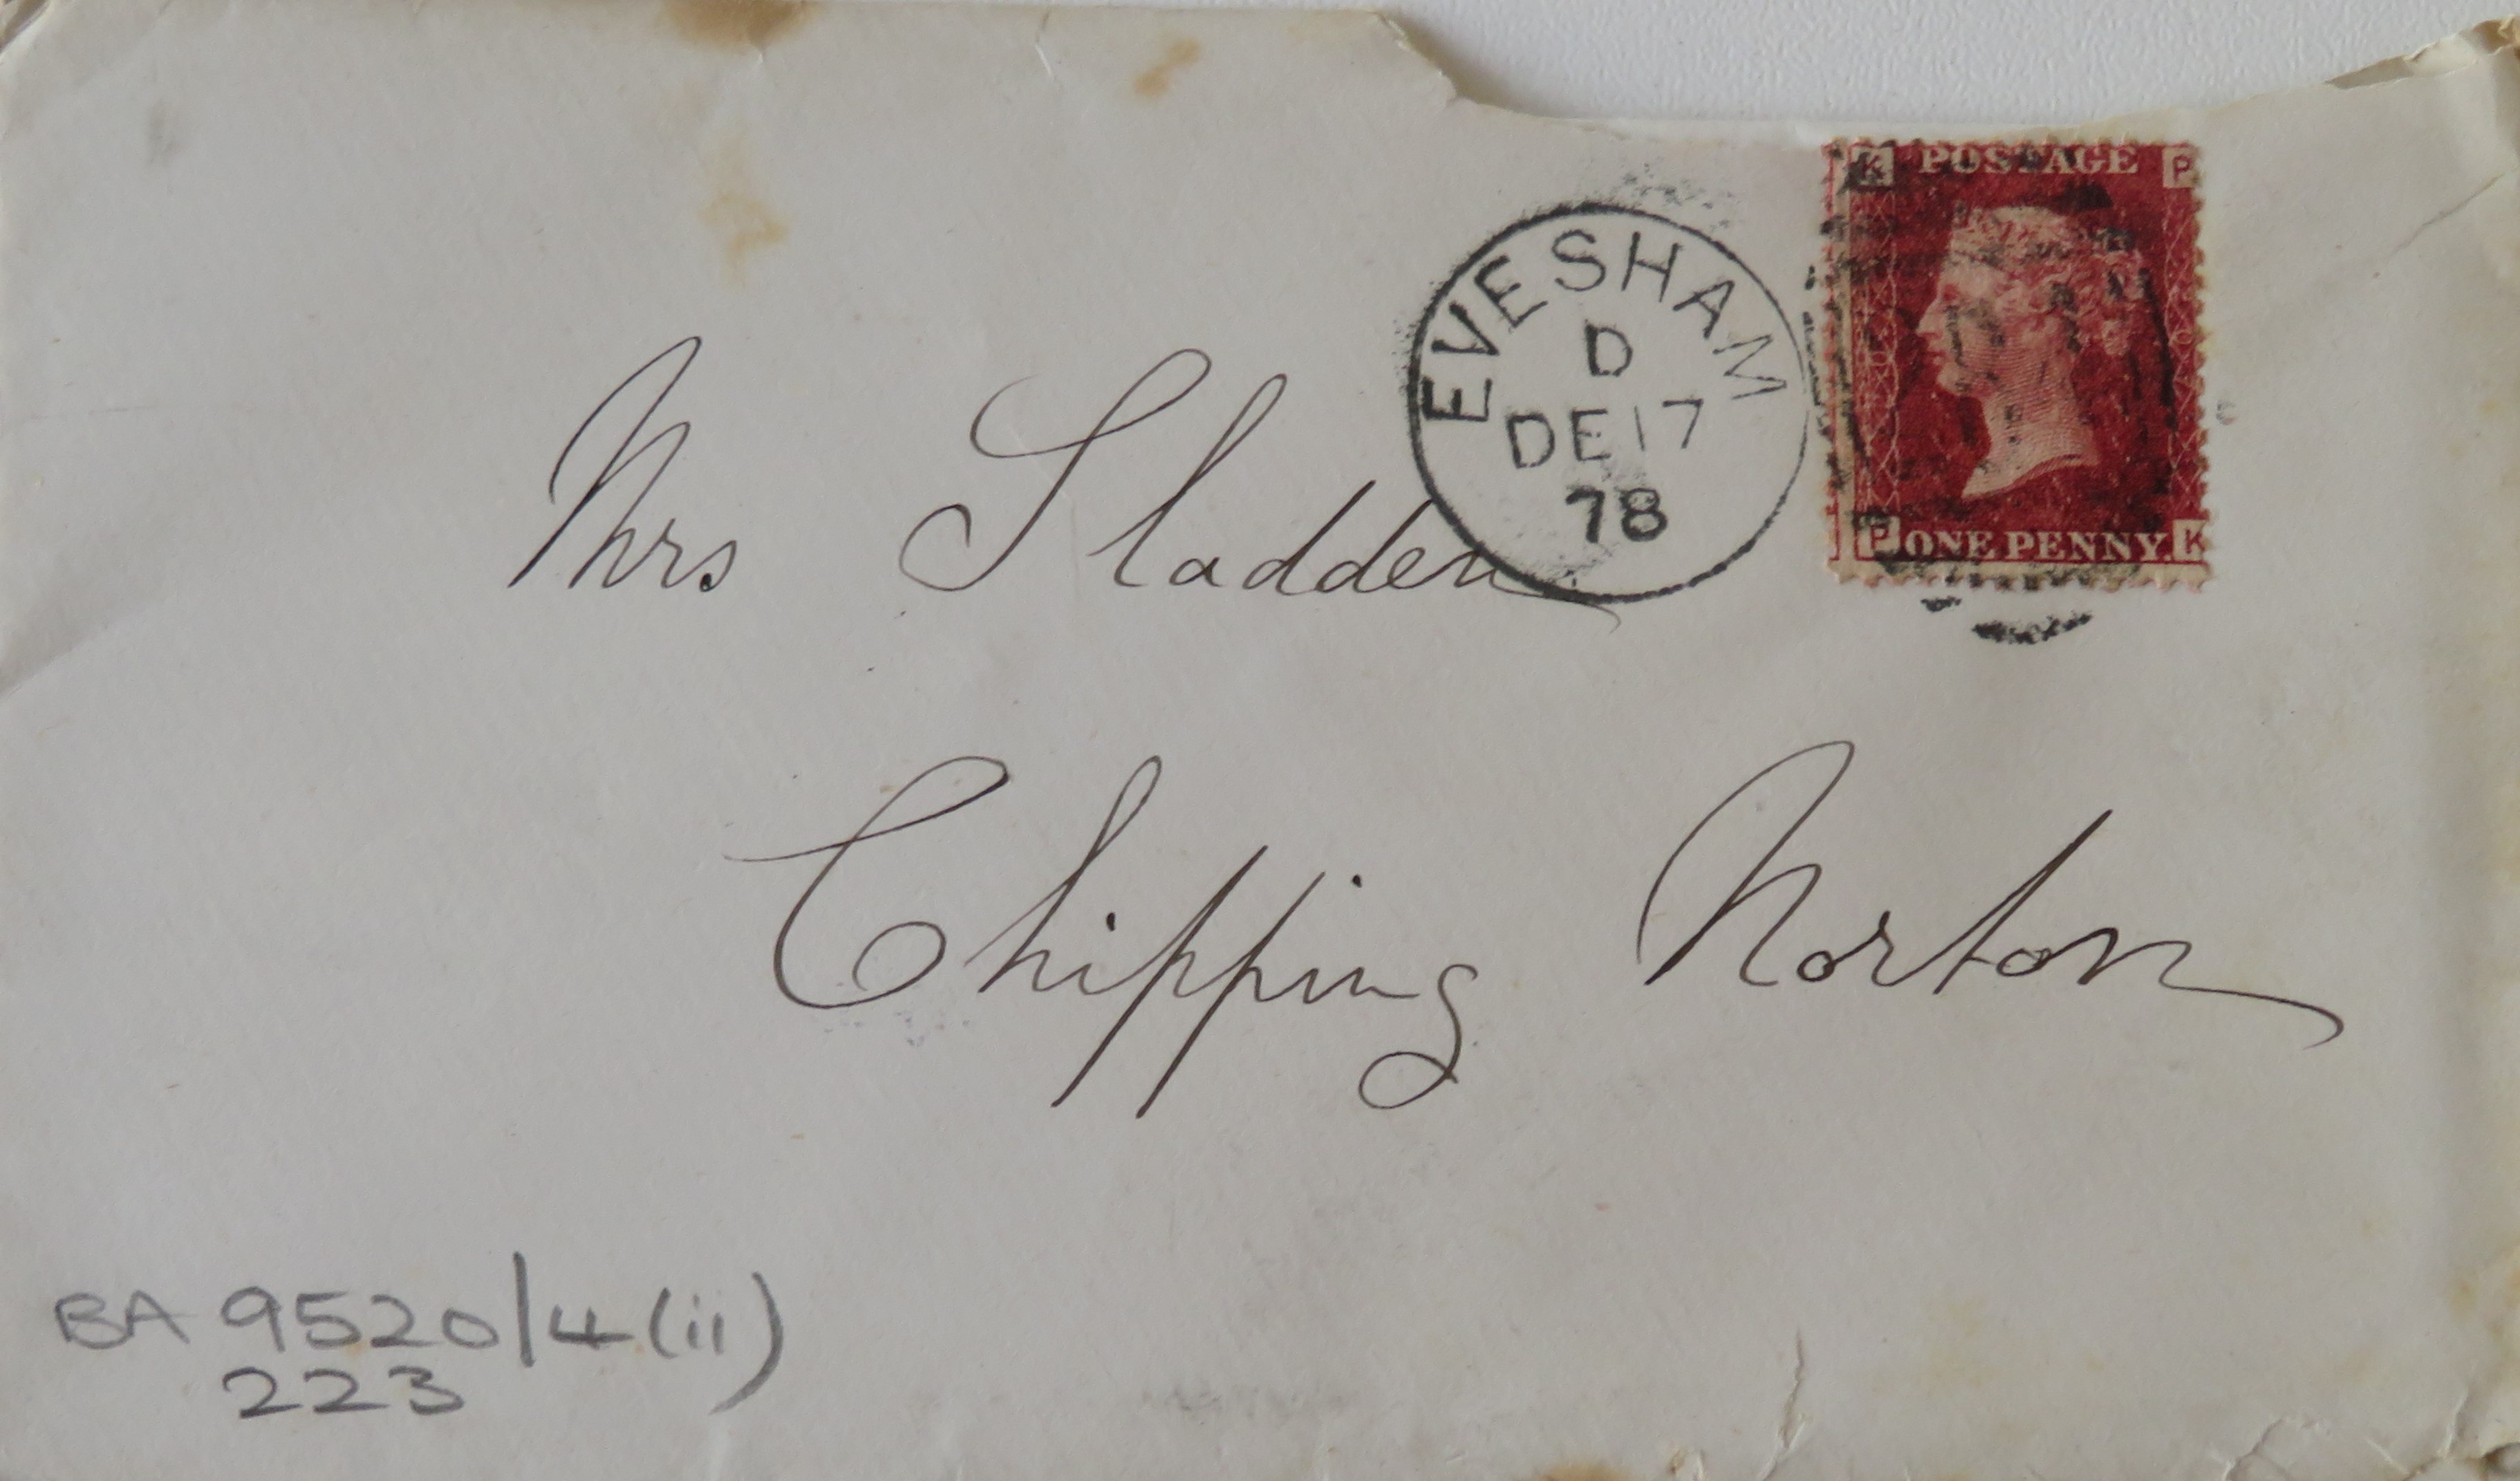 K POSTAGE P
EVESHAM
D
DE 17
78
P ONE PENNY. K
Mrs Sladden
Chipping Norton
BA 9520/4(ii)
223